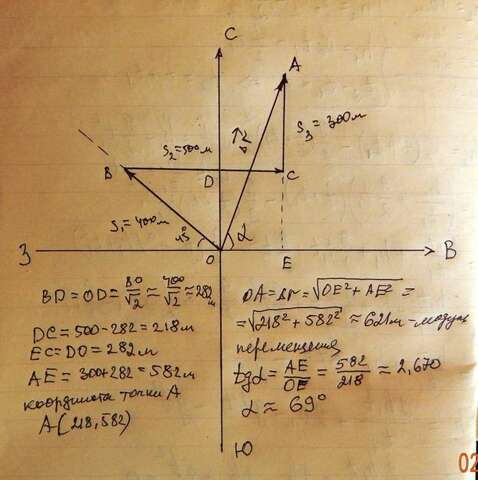 С
A
S₃ = 300м
S₂=500м
Δr
B
D
C
S₁=400м
45°
α
З
O
E
В
BD = OD = BO/√2 ≈ 400/√2 ≈ 282 м
DC = 500 - 282 = 218 м
EC = DO = 282 м
AE = 300 + 282 = 582 м
координата точки А
A(218, 582)
OA = Δr = √OE² + AE² =
= √218² + 582² ≈ 621м - модуль
перемещения
tgα = AE/OE = 582/218 ≈ 2,670
α ≈ 69°
Ю
02